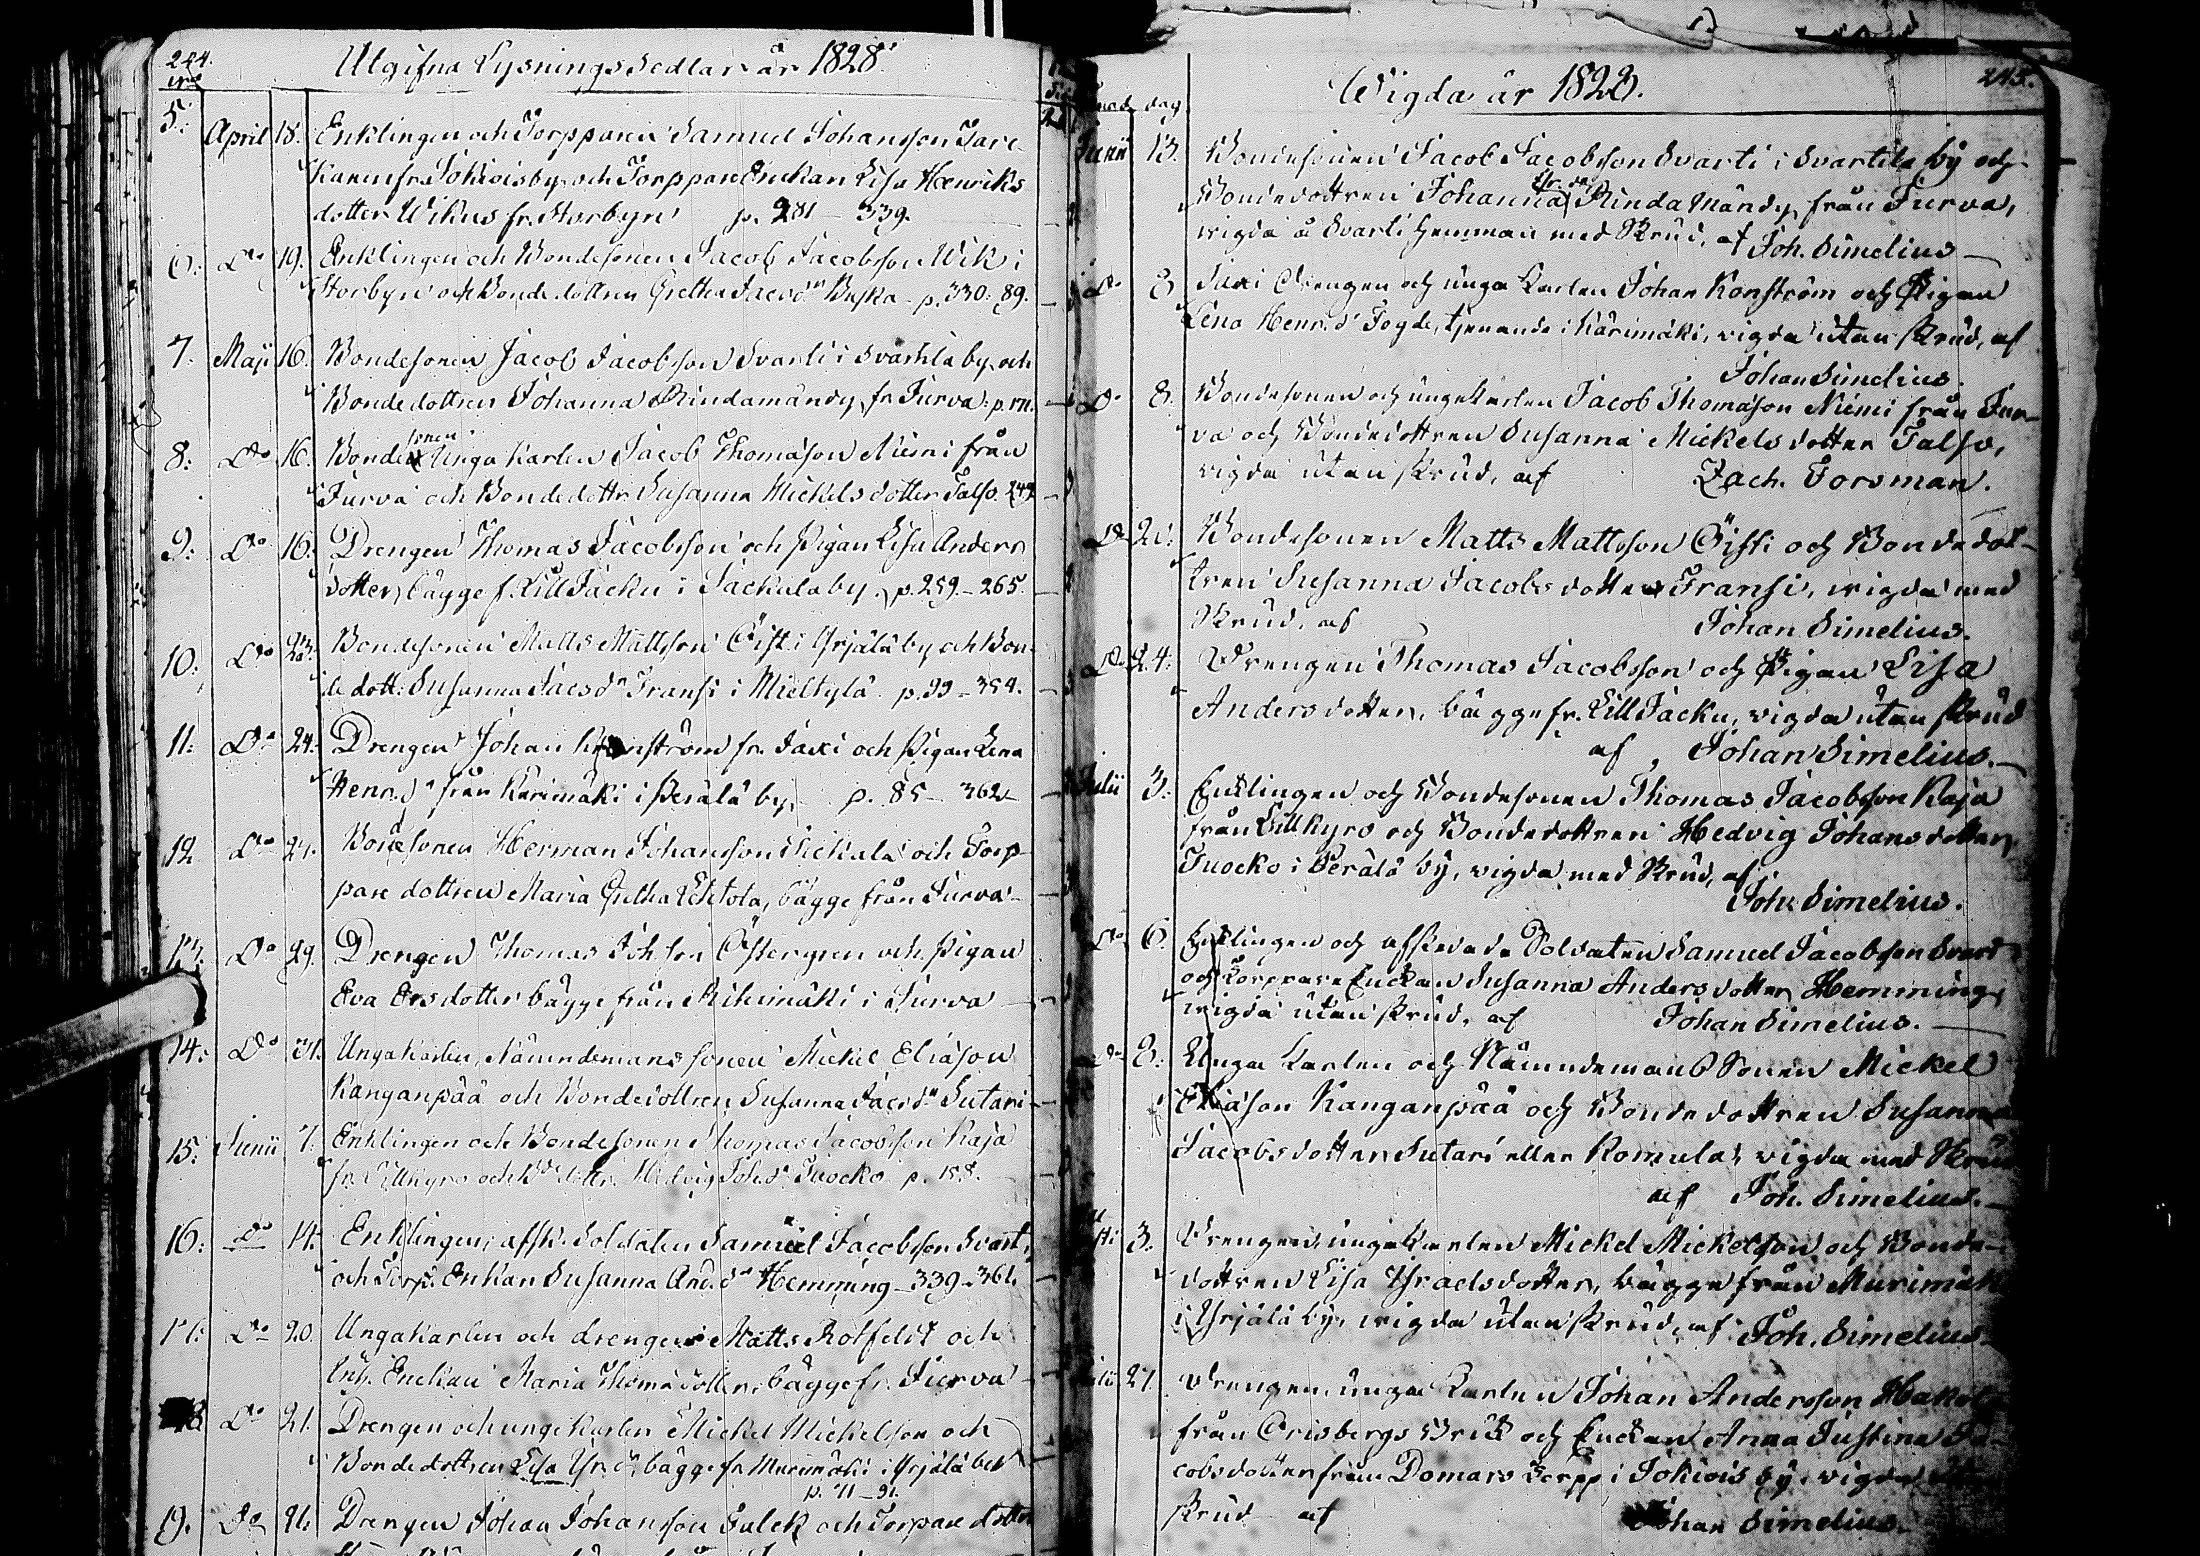 244.
Utgifna Lysningssedlar år 1828.
5. April 18. Enklingen och Torpparen Samuel Johansson Tare
Kanen fr. Jokioisby och Torppare Enckan Lisa Henriks
dotter Wikus fr. Storbyn p. 281 339.
6. Do 19. Enklingen och Bondesonen Jacob Jacobsson Wik i
Storbyn och Bondedottren Gretha Jacsdr Buska p. 330. 89.
7. Maji 16. Bondesonen Jacob Jacobsson Svarti i Svartila by och
Bondedottren Johanna Rindamändy fr Jurva. p.
8: Do 16. Bonde sonen Unga Karlen Jacob Thomasson Niemi från
Jurva och Bondedottr Susanna Mickelsdotter Talso. 249
9: Do 16. Drengen Thomas Jacobsson och Pigan Lisa Anders
dotter, bägge f. Lill Jäcku i Jäckulaby. p. 259. 265.
10: Do 23. Bondesonen Matts Mattsson Öisti Yrjälä by och Bon-
dedott: Susanna Jacsdr Fransi i Mieltylä. p. 99 - 354.
11: Do 24. Drengen Johan Kronström fr. Jaxi och Pigan Lena
Henr.dr från Karimäki i Peräläby, p. 85 362
12 Do 24. Bondesonen Herman Johansson och Torp-
pare dottren Maria Gretha Lehtola, bägge från Jurva
13. Do 29. Drengen Thomas Joh son Östergren och Pigan
Eva Ersdotter bägge från Rihimäki i Jurva
14: Do 31. Ungakarlen, Nämndemans sonen Mickel Eliasson
Kanganpää och Bondedottren Susanna Jacsdr Sutari
15: Junii 7. Enklingen och Bondesonen Thomas Jacobsson Raja
fr. Lillkyro och Bdedottr. Hedvig Joh.dr Tuocko p. 158.
16: Do 14. Enklingen, afsk. Soldaten Samuel Jacobsson Svart,
och Torp. Enkan Susanna And.dr Hemming 339 - 361.
17: Do 20. Ungakarlen och drengen Matts Rotfeldt och
Enckan Maria Thomædotter, bägge fr. Jurva
18 Do 21. Drengen och unge Karlen Mickel Mickelsson och
Bondedottren Lisa Yr.dr bägge fr Murimäki i Yrjälä
p. 71 - 91.
19. Do 21. Drengen Johan Johansson Julek och Torpare dotter
245.
Wigda år 1828.
dag
Junii 13. Bondesonen Jacob Jacobsson Svarti i Svartila by och
Bondedottren Johanna Rindamändy från Jurva,
vigda å Svarti hemman med Skrud, af Joh. Simelius
Do 8 Jaxi Drengen och unga Karlen Johan Konström och Pigan
Lena Henr.dr Fogde, tjenande i Kärimäki, vigda utan skrud, af
Johan Simelius.
Do 8. Bondesonen och ungekarlen Jacob Thomasson Niemi från Jur-
va och Bondedottren Susanna Mickelsdotter Talso,
vigda utan skrud, af Zach. Forsman.
Do 21: Bondesonen Matts Mattsson Öisti och Bondedot-
tren Susanna Jacobsdotter Fransi, vigda med
Skrud, af Johan Simelius.
Do 24: Drengen Thomas Jacobsson och Pigan Lisa
Andersdotter, bägge fr. Lill Jäcku, vigda utan skrud
af Johan Simelius.
Julii 3: Encklingen och Bondesonen Thomas Jacobsson Raja
från Lillkyro och Bondedottren Hedvig Johansdotter
Tuocko i Perälä by, vigda med Skrud, af
Joh. Simelius.
Do 6. Encklingen och afskedade Soldaten Samuel Jacobsson Svart
och Torppare Enckan Susanna Andersdotter Hemming,
vigda utan skrud, af Johan Simelius.
Do 8: Unga Karlen och Nämndemans Sonen Mickel
Eliasson Kanganpää och Bondedottren Susanna
Jacobsdotter Sutari eller Romula, vigda med Skrud
af Joh. Simelius.
3. Drengen, ungekarlen Mickel Mickelsson och Bonde-
dottren Lisa Yraelsdotter, bägge från Murimäki
i Yrjälä by, vigda utan skrud, af Joh. Simelius
27. Drengen, unga Karlen Johan Andersson
från Orisbergs Bruk och Enckan Anna Justina Ja-
cobsdotter från Domars Torpp i Jokiois by, vigda utan
skrud af Johan Simelius.